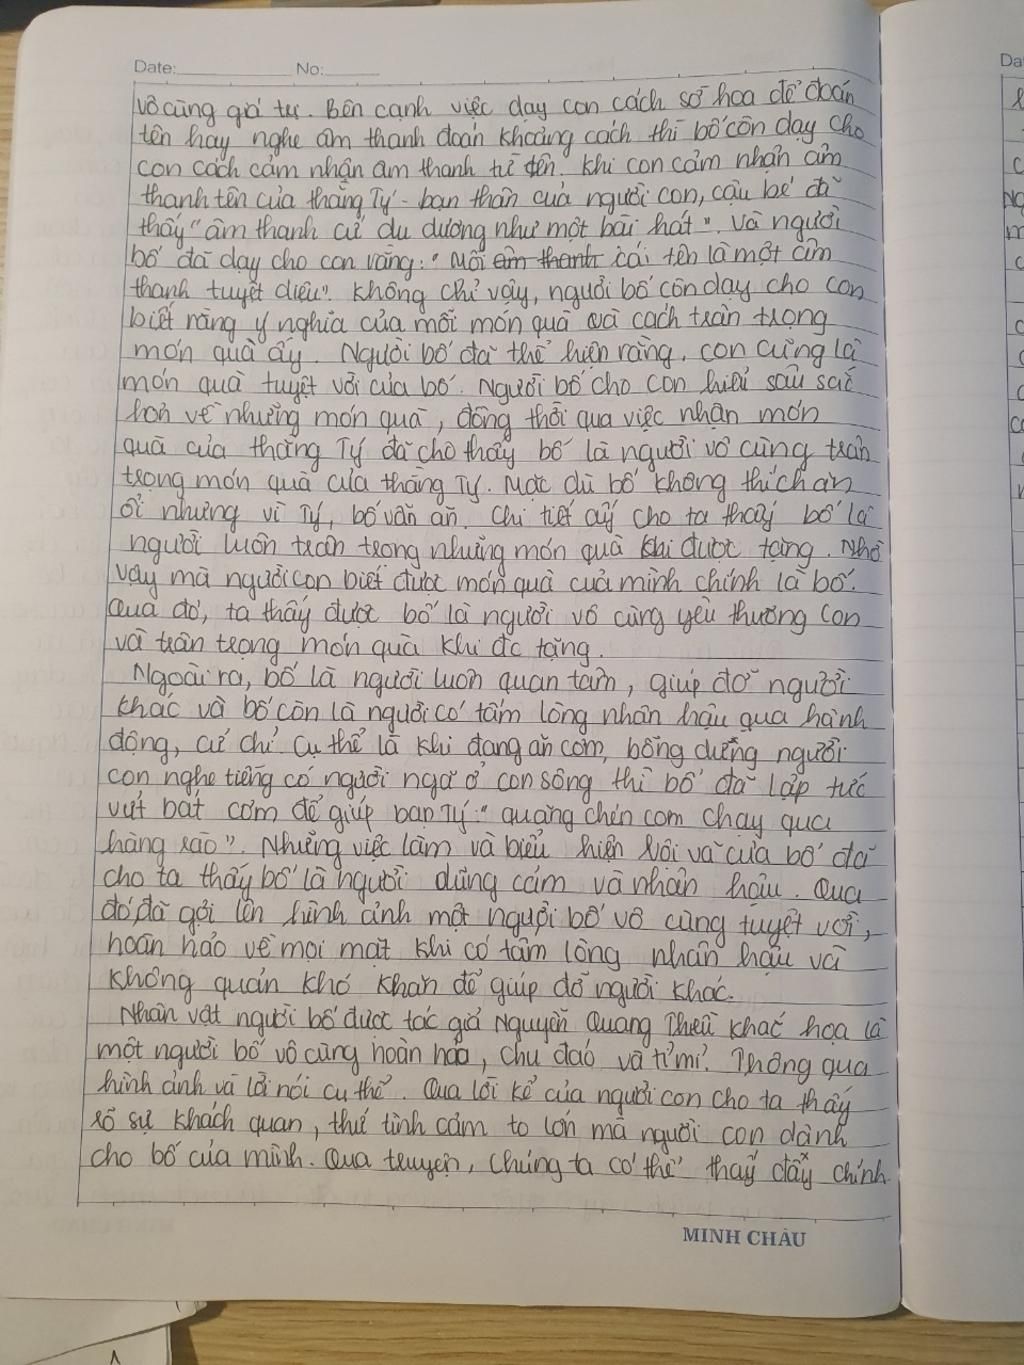 Date: No:
vô cùng giá trị. Bên cạnh việc dạy con cách sờ hoa để đoán
tên hay nghe âm thanh đoán khoảng cách thì bố còn dạy cho
con cách cảm nhận âm thanh từ tên. Khi con cảm nhận âm
thanh tên của thằng Tý - bạn thân của người con, cậu bé đã
thấy "âm thanh cứ du dương như một bài hát". Và người
bố đã dạy cho con rằng: "Mỗi âm thanh cái tên là một âm
thanh tuyệt diệu". Không chỉ vậy, người bố còn dạy cho con
biết rằng ý nghĩa của mỗi món quà và cách trân trọng
món quà ấy. Người bố đã thể hiện rằng, con cũng là
món quà tuyệt vời của bố. Người bố cho con hiểu sâu sắc
hơn về những món quà, đồng thời qua việc nhận món
quà của thằng Tý đã cho thấy bố là người vô cùng trân
trọng món quà của thằng Tý. Mặc dù bố không thích ăn
ổi nhưng vì Tý, bố vẫn ăn. Chi tiết ấy cho ta thấy bố là
người luôn trân trọng những món quà khi được tặng. Nhờ
vậy mà người con biết được món quà của mình chính là bố.
Qua đó, ta thấy được bố là người vô cùng yêu thương con
và trân trọng món quà khi đc tặng.
Ngoài ra, bố là người luôn quan tâm, giúp đỡ người
khác và bố còn là người có tấm lòng nhân hậu qua hành
động, cử chỉ cụ thể là khi đang ăn cơm, bỗng dưng người
con nghe tiếng có người ngã ở con sông thì bố đã lập tức
vứt bát cơm để giúp bạn Tý: "quăng chén cơm chạy qua
hàng rào". Những việc làm và biểu hiện vội vã của bố đã
cho ta thấy bố là người dũng cảm và nhân hậu. Qua
đó, đã gợi lên hình ảnh một người bố vô cùng tuyệt vời,
hoàn hảo về mọi mặt khi có tấm lòng nhân hậu và
không quản khó khăn để giúp đỡ người khác.
Nhân vật người bố được tác giả Nguyễn Quang Thiều khắc họa là
một người bố vô cùng hoàn hảo, chu đáo và tỉ mỉ. Thông qua
hình ảnh và lời nói cụ thể. Qua lời kể của người con cho ta thấy
rõ sự khách quan, thứ tình cảm to lớn mà người con dành
cho bố của mình. Qua truyện, chúng ta có thể thấy đây chính
MINH CHÂU